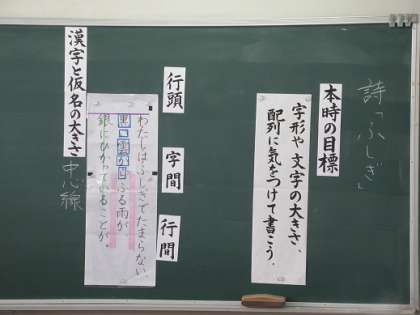 詩「ふしぎ」
本時の目標
字形や文字の大きさ、
配列に気をつけて書こう。
行頭
字間
行間
わたしはふしぎでたまらない、
黒い雲からふる雨が、
銀にひかっていることが。
漢字と仮名の大きさ
中心線